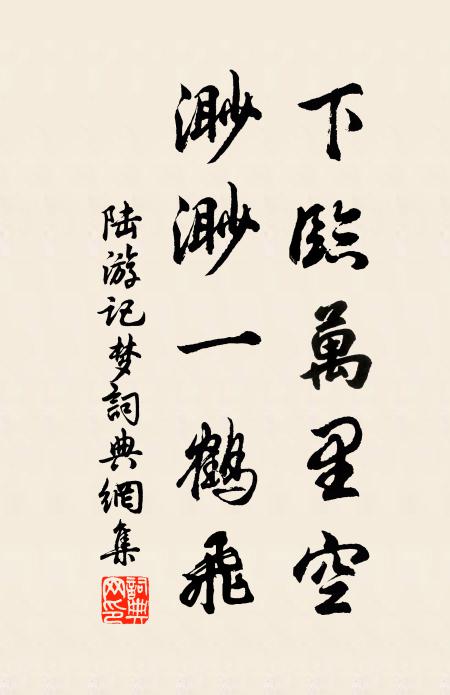 下臨萬里空
渺渺一鶴飛
陆游记梦詞典網集
詞典网印